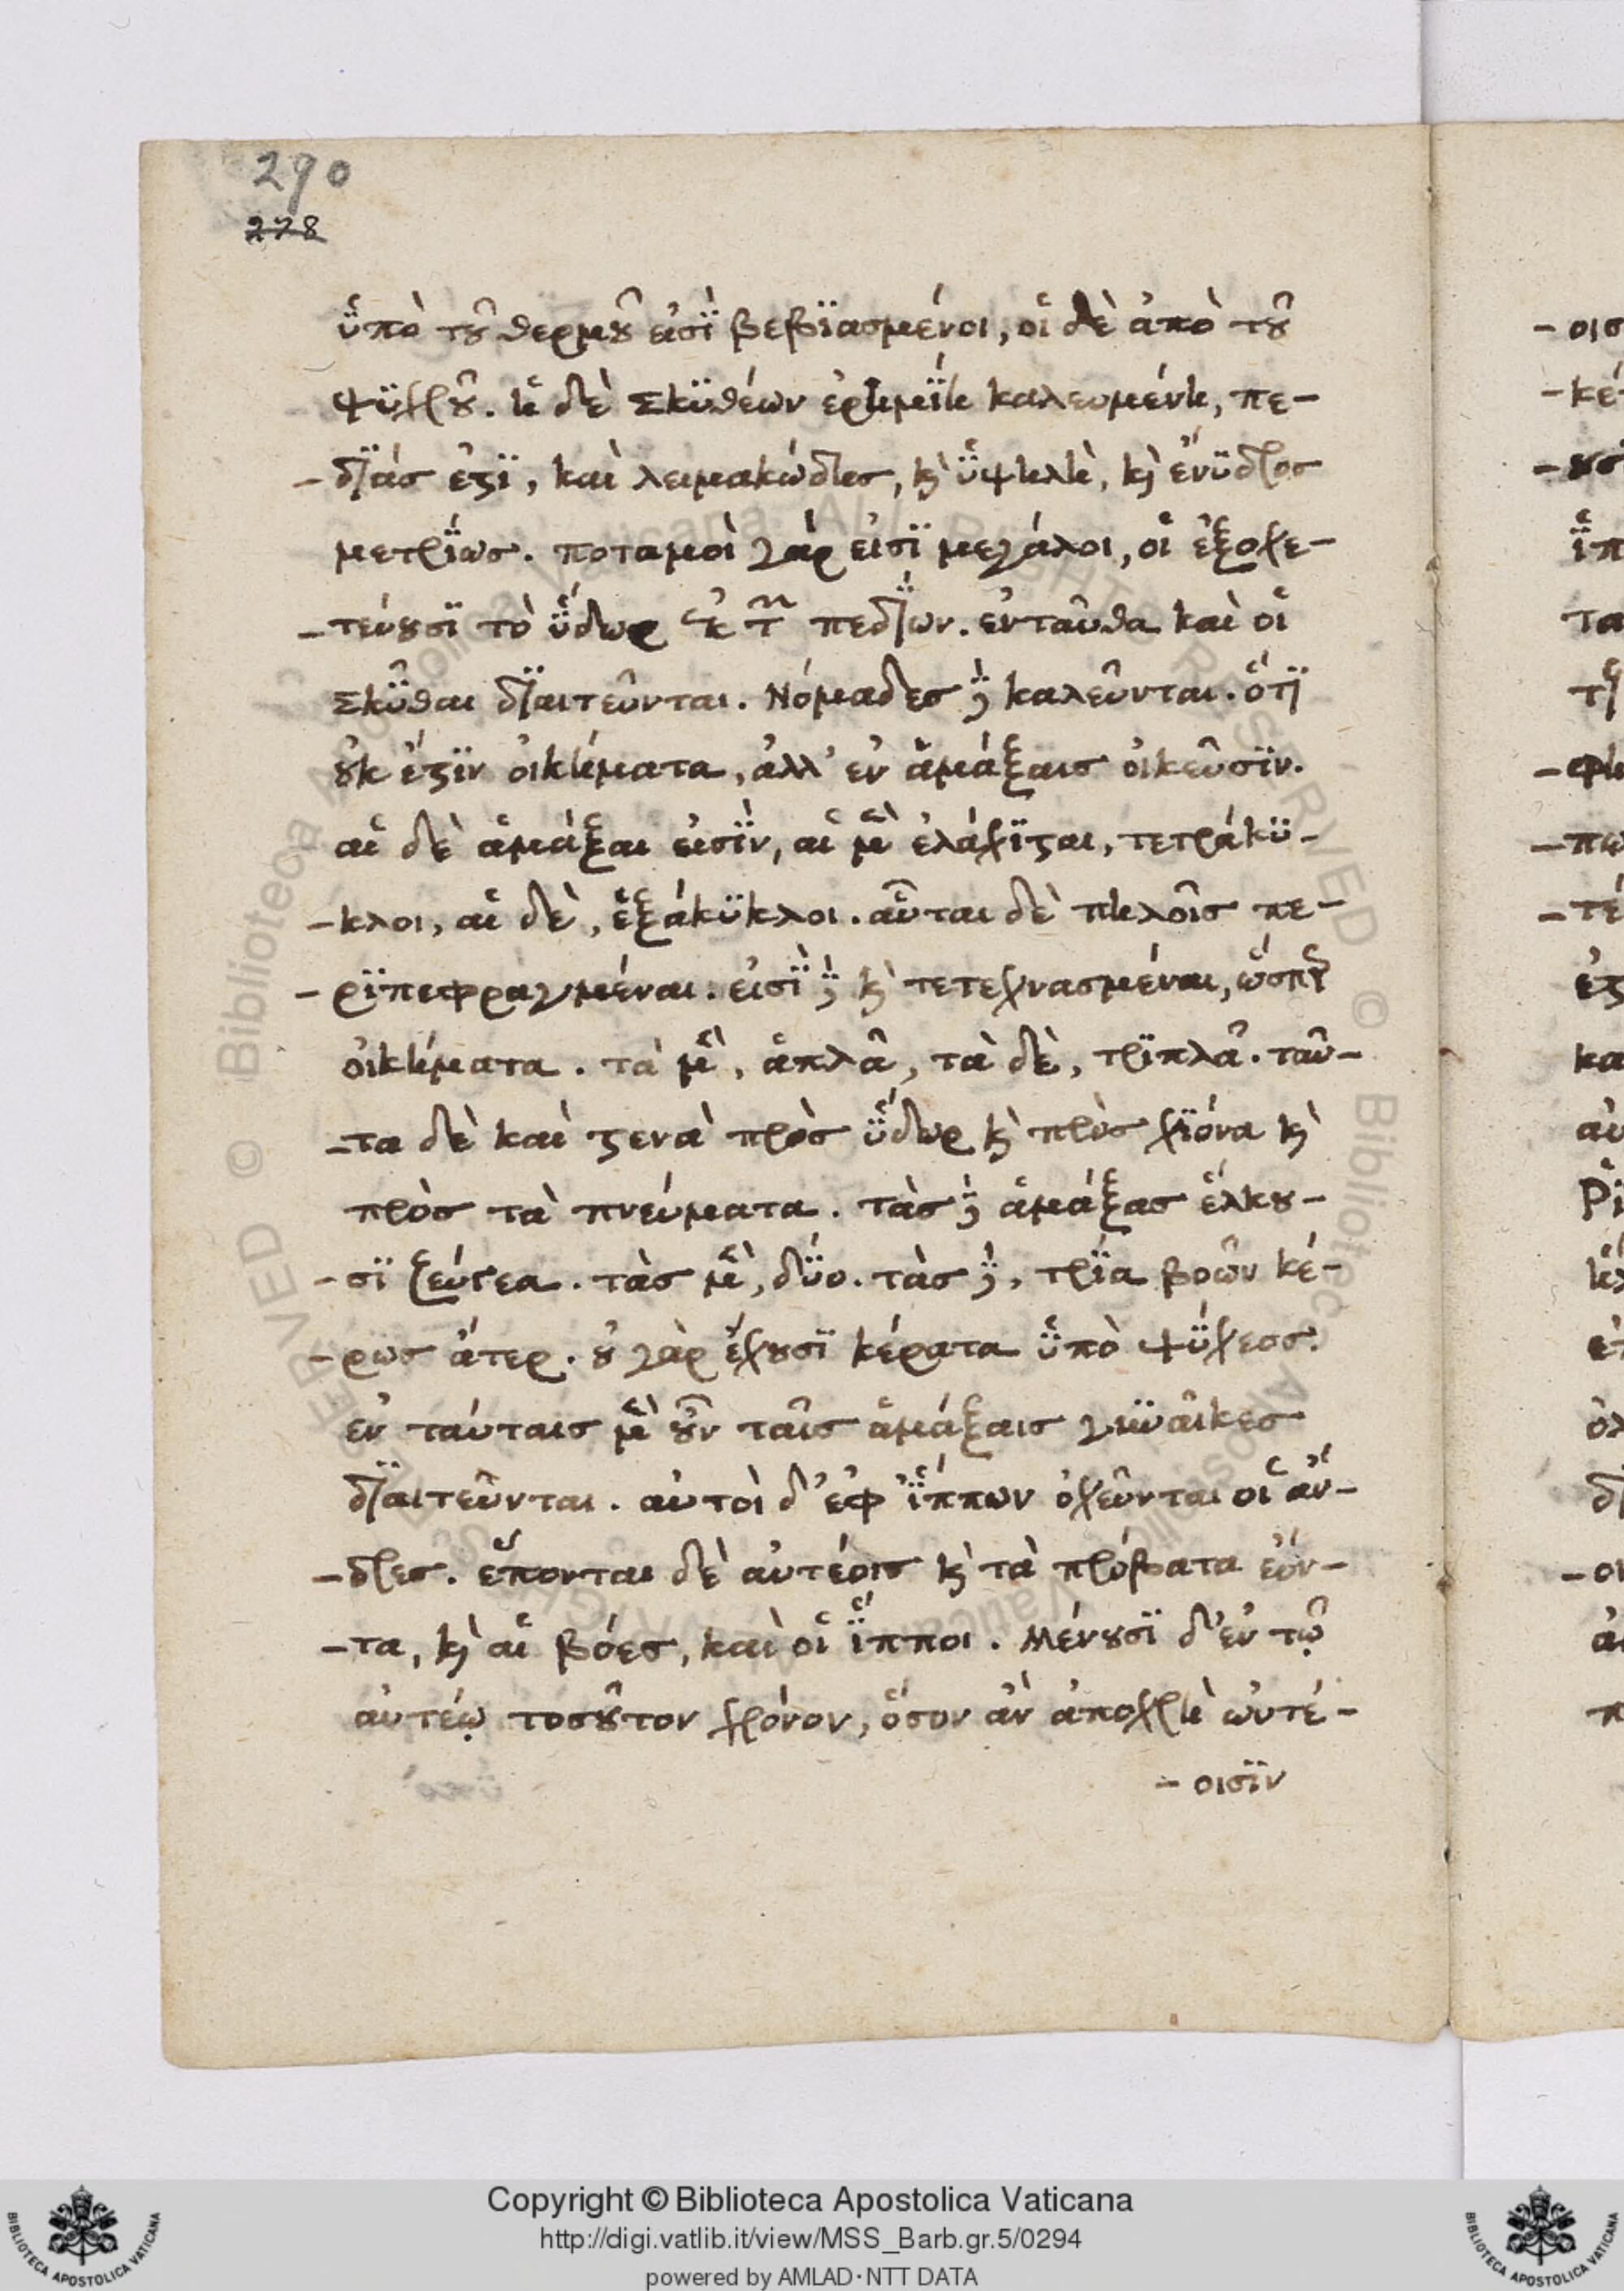 290
278
ὑπὸ τȣ͂ θερμȣ͂ εἰσῒ βεβϊασμένοι, οἱ δὲ ἀπὸ τȣ͂
ψϋχρȣ͂. ἡ δὲ Σκϋθέων ἐρημΐη καλευμένη, πε-
-δϊάς ἐϛϊ, καὶ λειμακώδης, κ̀ ὑψηλὴ, κ̀ ἔνϋδρος
μετρΐως. ποταμοὶ γάρ εἰσϊ μεγάλοι, οἳ ἐξοχε-
-τεύȣσϊ τὸ ὕδωρ ἐκ τ̃ πεδΐων. ἐνταῦθα καὶ οἱ
Σκῦθαι δϊαιτεῦνται. Νόμαδες δ̀ καλεῦνται. ὅτϊ
ȣ̓κ ἔϛϊν οἰκήματα, ἀλλ' ἐν ἁμάξαις οἰκεῦσϊν.
αἱ δὲ ἅμαξαι εἰσῒν, αἱ μὲ̀ ἐλάχϊϛαι, τετράκϋ-
-κλοι, αἱ δὲ, ἑξάκϋκλοι. αὗται δὲ πηλοῖς πε-
-ρϊπεφραγμέναι. εἰσῒ δ̀ κ̀ τετεχνασμέναι, ὥσπ̃
οἰκήματα. τὰ μὲ̀, ἁπλᾶ, τὰ δὲ, τρϊπλᾶ. ταῦ-
-τα δὲ καὶ ϛενὰ πρὸς ὕδωρ κ̀ πρὸς χϊόνα κ̀
πρὸς τὰ πνεύματα. τὰς δ̀ ἁμάξας ἕλκȣ-
-σϊ ζεύγεα. τὰς μὲ̀, δύο. τὰς δ̀, τρΐα βοῶν κέ-
-ρως ἄτερ. ȣ̓ γὰρ ἔχȣσϊ κέρατα ὑπὸ ψύχεος.
ἐν ταύταις μὲ̀ ȣ̓͂ν ταῖς ἁμάξαις γυναῖκες
δϊαιτεῦνται. αὐτοὶ δ' ἐφ' ἵππων ὀχεῦνται οἱ ἄν-
-δρες. ἕπονται δὲ αὐτέοις κ̀ τὰ πρόβατα ἐόν-
-τα, κ̀ αἱ βόες, καὶ οἱ ἵπποι. Μένȣσϊ δ' ἐν τῷ
αὐτέῳ τοσȣ͂τον χρόνον, ὅσον ἂν ἀποχρὴ ωὐτέ-
-οισϊν
-οισ
-κέ
-ȣσ
ἱπ
τα
-φη
-πω
-τέ
ἐϛ
κα
αὐ
Copyright © Biblioteca Apostolica Vaticana
http://digi.vatlib.it/view/MSS_Barb.gr.5/0294
powered by AMLAD·NTT DATA